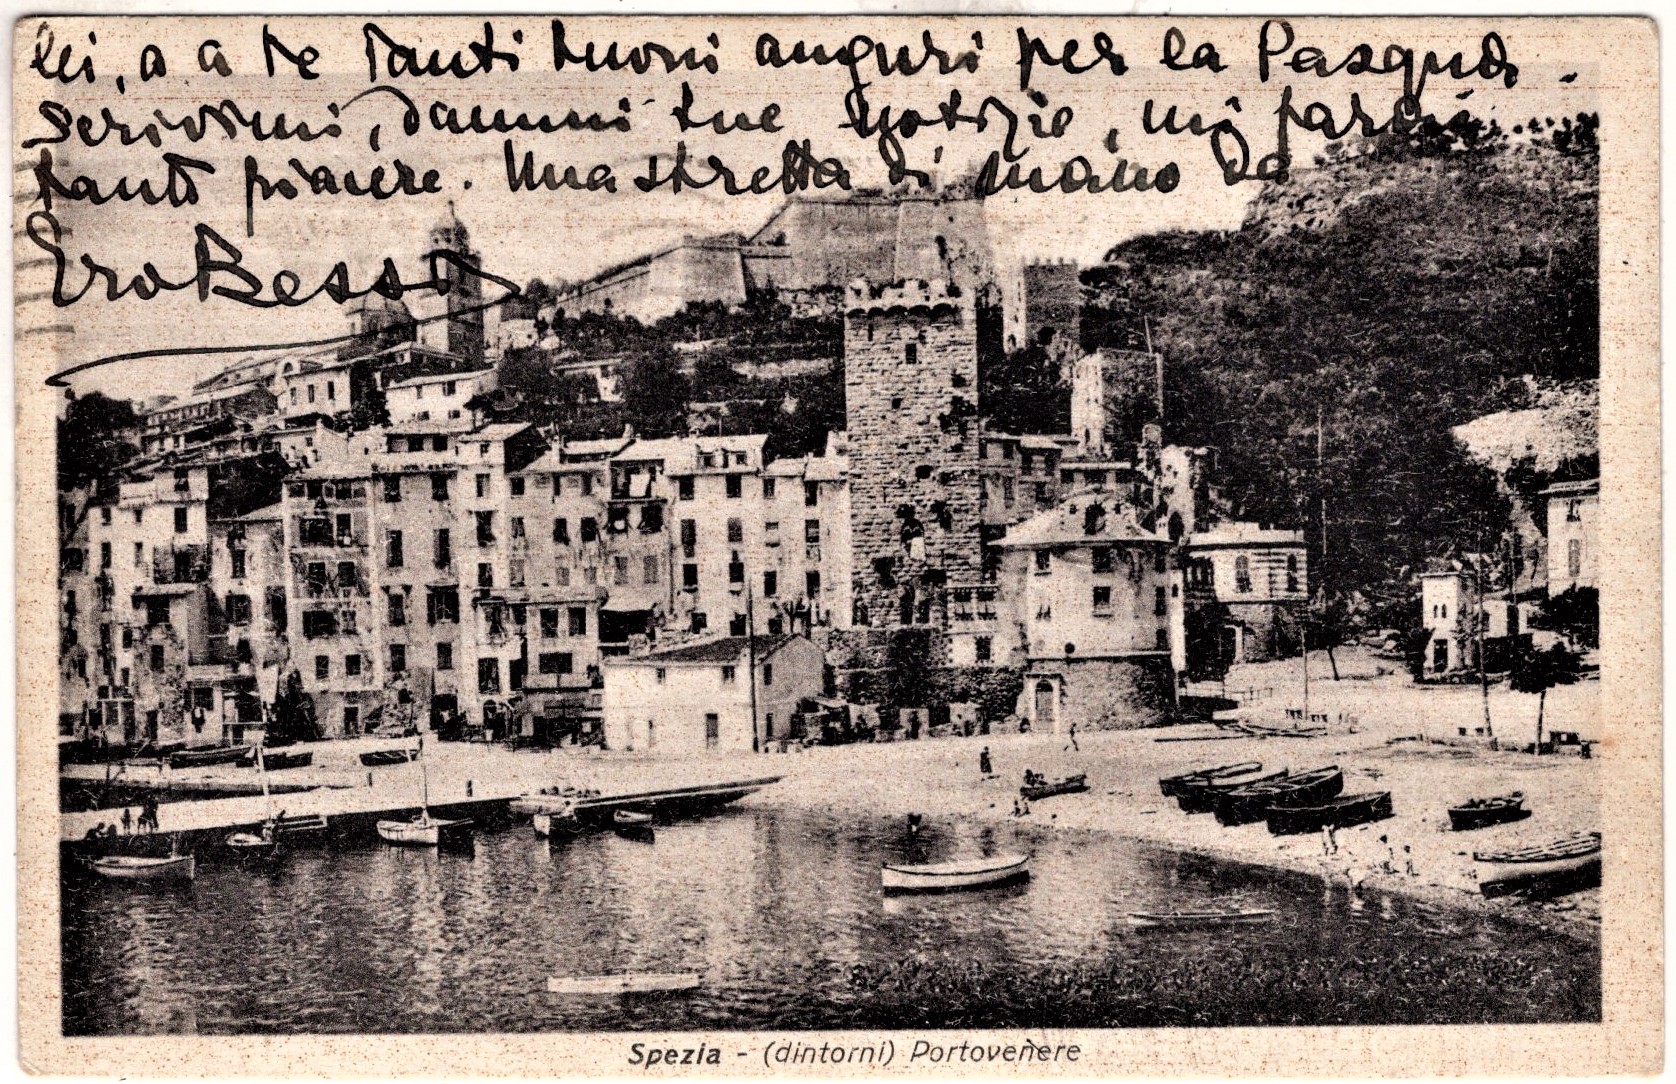 lei, a a te tanti buoni auguri per la Pasqua.
scrivimi, dammi tue notizie, mi farai
tanto piacere. Una stretta di mano da
Ero Besso
Spezia - (dintorni) Portovenere